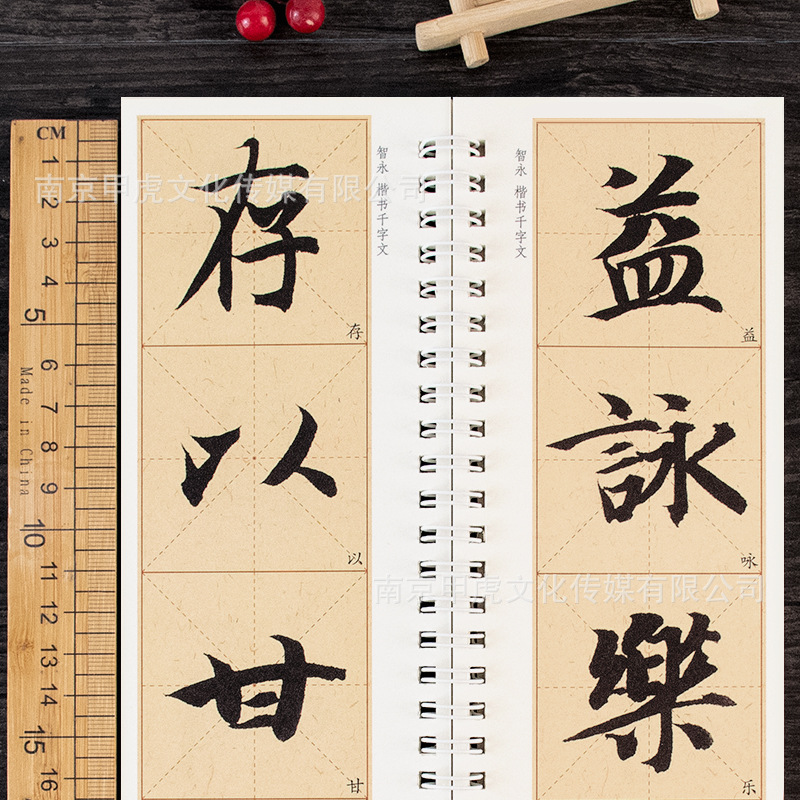 CM
1
2
3
4
5
6
7
8
9
10
11
12
13
14
15
16
Made in China
南京甲虎文化传媒有限公司
存
存
以
以
甘
甘
智永 楷书千字文
智永 楷书千字文
益
益
詠
咏
樂
乐
南京甲虎文化传媒有限公司